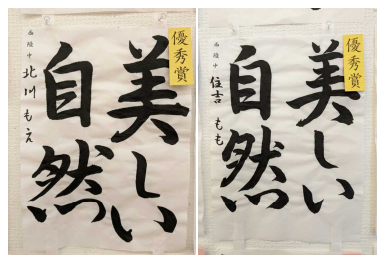 優秀賞
美しい
自然
西陵中 北川 もえ
優秀賞
美しい
自然
西陵中 住吉 もも